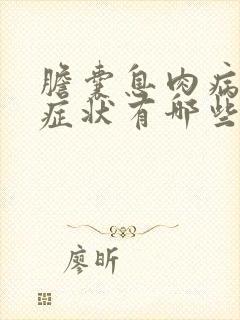 膽囊息肉病
症状有哪些
廖昕